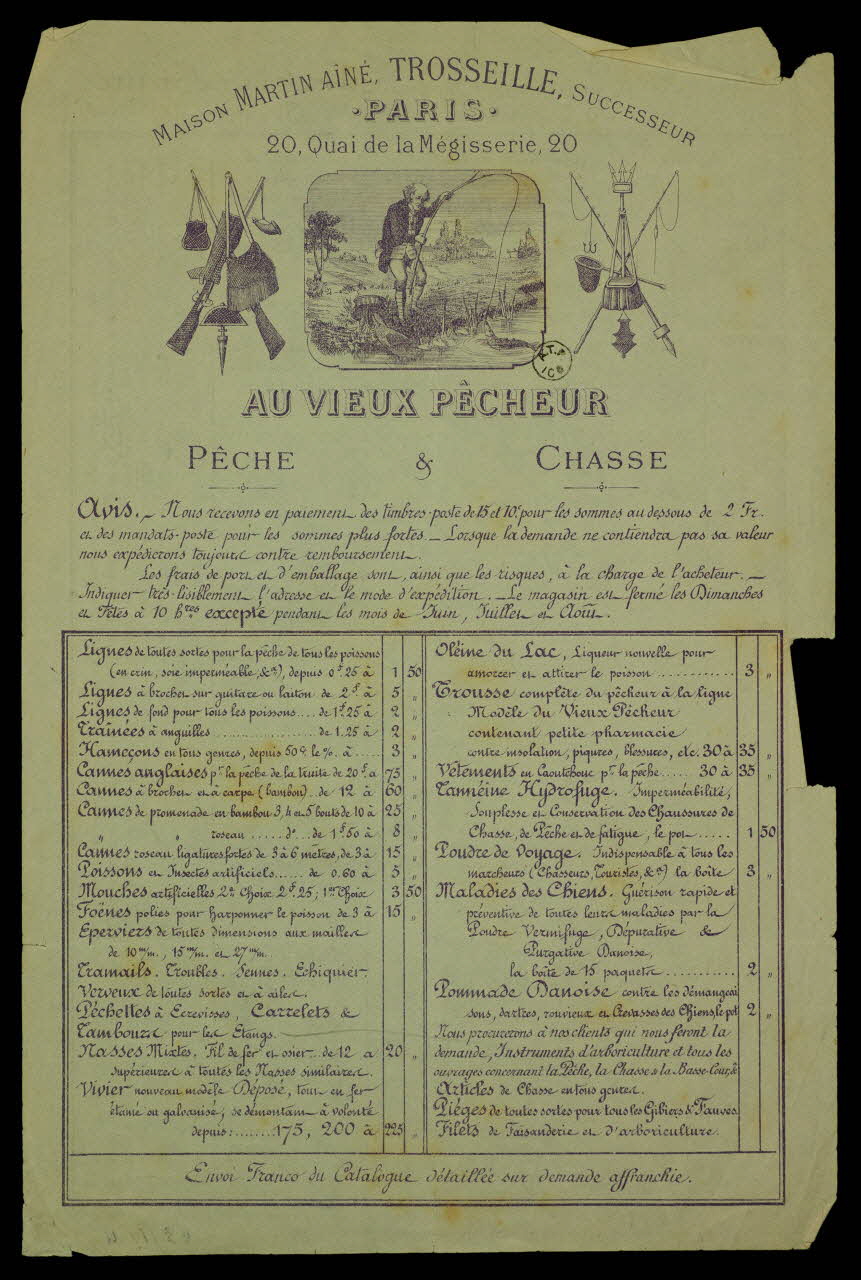 MAISON MARTIN AÎNÉ, TROSSEILLE, SUCCESSEUR
·PARIS·
20, Quai de la Mégisserie, 20
AU VIEUX PÊCHEUR
PÊCHE & CHASSE
Avis. — Nous recevons en paiement des timbres-poste de 15 et 10c pour les sommes au dessous de 2 Fr.
et des mandats-poste pour les sommes plus fortes. — Lorsque la demande ne contiendra pas sa valeur
nous expédierons toujours contre remboursement.
Les frais de port et d'emballage sont, ainsi que les risques, à la charge de l'acheteur. —
Indiquer très-lisiblement l'adresse et le mode d'expédition. — Le magasin est fermé les Dimanches
et Fêtes à 10 hres excepté pendant les mois de Juin, Juillet et Août.
Lignes de toutes sortes pour la pêche de tous les poissons
(en crin, soie imperméable, &a), depuis 0f 25 à 1 50
Lignes à brochet sur guitare ou laiton de 2f à 5 "
Lignes de fond pour tous les poissons.... de 1f.25 à 2 "
Traînées à anguilles ............... de 1.25 à 2 "
Hameçons en tous genres, depuis 50c le % à ..... 3 "
Cannes anglaises pr la pêche de la truite de 20f à 75 "
Cannes à brochet et à carpe (bambou).. de 12 à 60 "
Cannes de promenade en bambou 3, 4 et 5 bouts de 10 à 25 "
" " roseau ..... do.. de 1f 50 à 8 "
Cannes roseau ligatures fortes de 3 à 6 mètres, de 3 à 15 "
Poissons et Insectes artificiels..... de 0.60 à 5 "
Mouches artificielles 2e Choix 2f.25; 1er Choix 3 50
Foënes polies pour harponner le poisson de 3 à 15 "
Eperviers de toutes dimensions aux mailles
de 10 m/m., 15 m/m. et 27 m/m.
Tramails. Troubles. Sennes. Echiquier
Verveux de toutes sortes et à ailes
Péchettes à Ecrevisses, Carrelets &
Tambours pour les Etangs.
Nasses Mixtes. Fil de fer et osier.. de 12 à 20 "
supérieures à toutes les Nasses similaires.
Vivier nouveau modèle Déposé, tout en fer
étamé ou galvanisé; se démontant à volonté
depuis:........175, 200 à 225 "
Oléine du Lac, Liqueur nouvelle pour
amorcer et attirer le poisson ............ 3 "
Trousse complète du pêcheur à la ligne
Modèle du Vieux Pêcheur
contenant petite pharmacie
contre insolation, piqures, blessures, etc. 30 à 35 "
Vêtements en Caoutchouc pr. la pêche ..... 30 à 35 "
Tannéine Hydrofuge. Imperméabilité,
Souplesse et Conservation des Chaussures de
Chasse, de Pêche et de fatigue, le pot ..... 1 50
Poudre de Voyage. Indispensable à tous les
marcheurs (Chasseurs, Touristes, &a) la boîte 3 "
Maladies des Chiens. Guérison rapide et
préventive de toutes leurs maladies par la
Poudre Vermifuge, Dépurative &
Purgative Danoise,
la boîte de 15 paquets ........... 2 "
Pommade Danoise contre les démangeai
sons, dartres, rouvieux et Crevasses des Chiens, le pot 2 "
Nous procurerons à nos clients qui nous feront la
demande, Instruments d'arboriculture et tous les
ouvrages concernant la Pêche, la Chasse & la Basse-Cour, &
Articles de Chasse en tous genres.
Pièges de toutes sortes pour tous les Gibiers & Fauves
Filets de Faisanderie et d'arboriculture.
Envoi Franco du Catalogue détaillée sur demande affranchie.